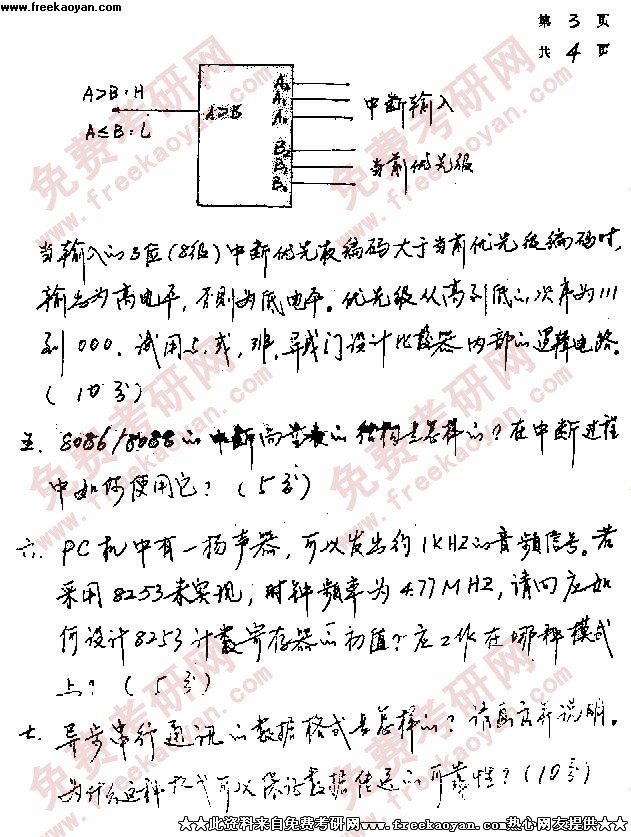 www.freekaoyan.com
第 3 页
共 4 页
A>B:H
A≤B:L
A>B
A₂
A₁
A₀
B₂
B₁
B₀
中断输入
当前优先级
当输入的3位(8级)中断优先级编码大于当前优先级编码时,
输出为高电平,否则为低电平。优先级从高到低的次序为111
到000.试用与,或,非,异或门设计比较器内部的逻辑电路。
(10分)
五.8086/8088的中断向量表的结构是怎样的?在中断过程
中如何使用它?(5分)
六.PC机中有一扬声器,可以发出约1KHZ的音频信号。若
采用8253来实现,时钟频率为4.77MHZ,请问应如
何设计8253计数寄存器的初值?应工作在哪种模式
上?(5分)
七.异步串行通讯的数据格式是怎样的?请画言并说明。
为什么这种格式可以保证数据传送的可靠性?(10分)
免费考研网
www.freekaoyan.com
★★此资料来自免费考研网www.freekaoyan.com热心网友提供★★